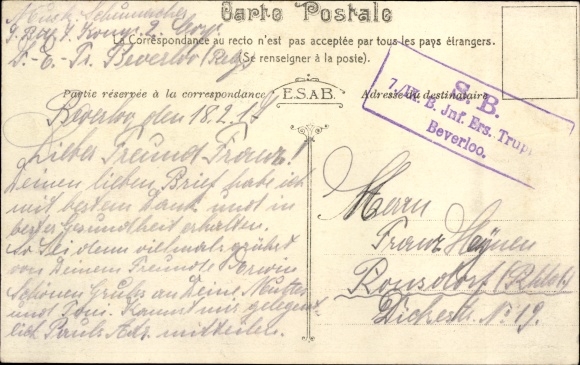 Carte Postale
Musk. Schumacher
2. Komp.
La Correspondance au recto n'est pas acceptée par tous les pays étrangers.
I.-E.-Tr. Beverloo
(Se renseigner à la poste).
Partie réservée à la correspondance
E.S.A.B.
Adresse du destinataire
S. B.
B. Inf. Ers. Trup
Beverloo.
Beverloo den 18.2.1
Lieber Freund Franz!
Deinen lieben Brief habe ich
mit bestem Dank und in
bester Gesundheit erhalten.
So sei denn vielmals gegrüßt
von Deinem Freunde Erwin
Schönen Gruß an Deine Mutter
und Toni. Kannst mir gelegent-
lich Pauls Adr. mitteilen.
Herrn
Franz Heynen
Ronsdorf (Rhld.)
No 19.